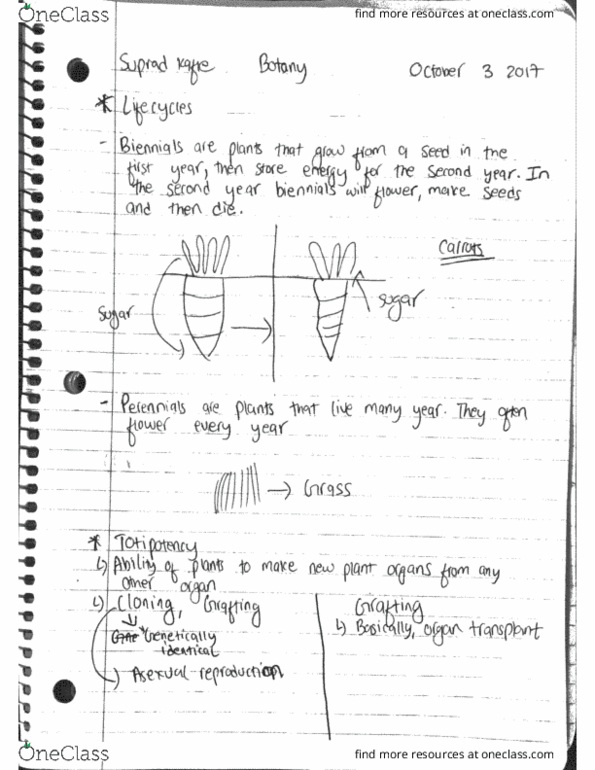 OneClass
find more resources at oneclass.com
Botany
October 3 2017
* Lifecycles
- Biennials are plants that grow from a seed in the
first year, then store energy for the second year. In
the second year biennials will flower, make seeds
and then die.
Carrots
Sugar
sugar
- Perennials are plants that live many year. They often
flower every year
→ Grass
* Totipotency
↳ Ability of plants to make new plant organs from any
other organ
↳ Cloning, Grafting
Genetically
identical
Asexual-reproduction
Grafting
↳ Basically, organ transplant
OneClass
find more resources at oneclass.com